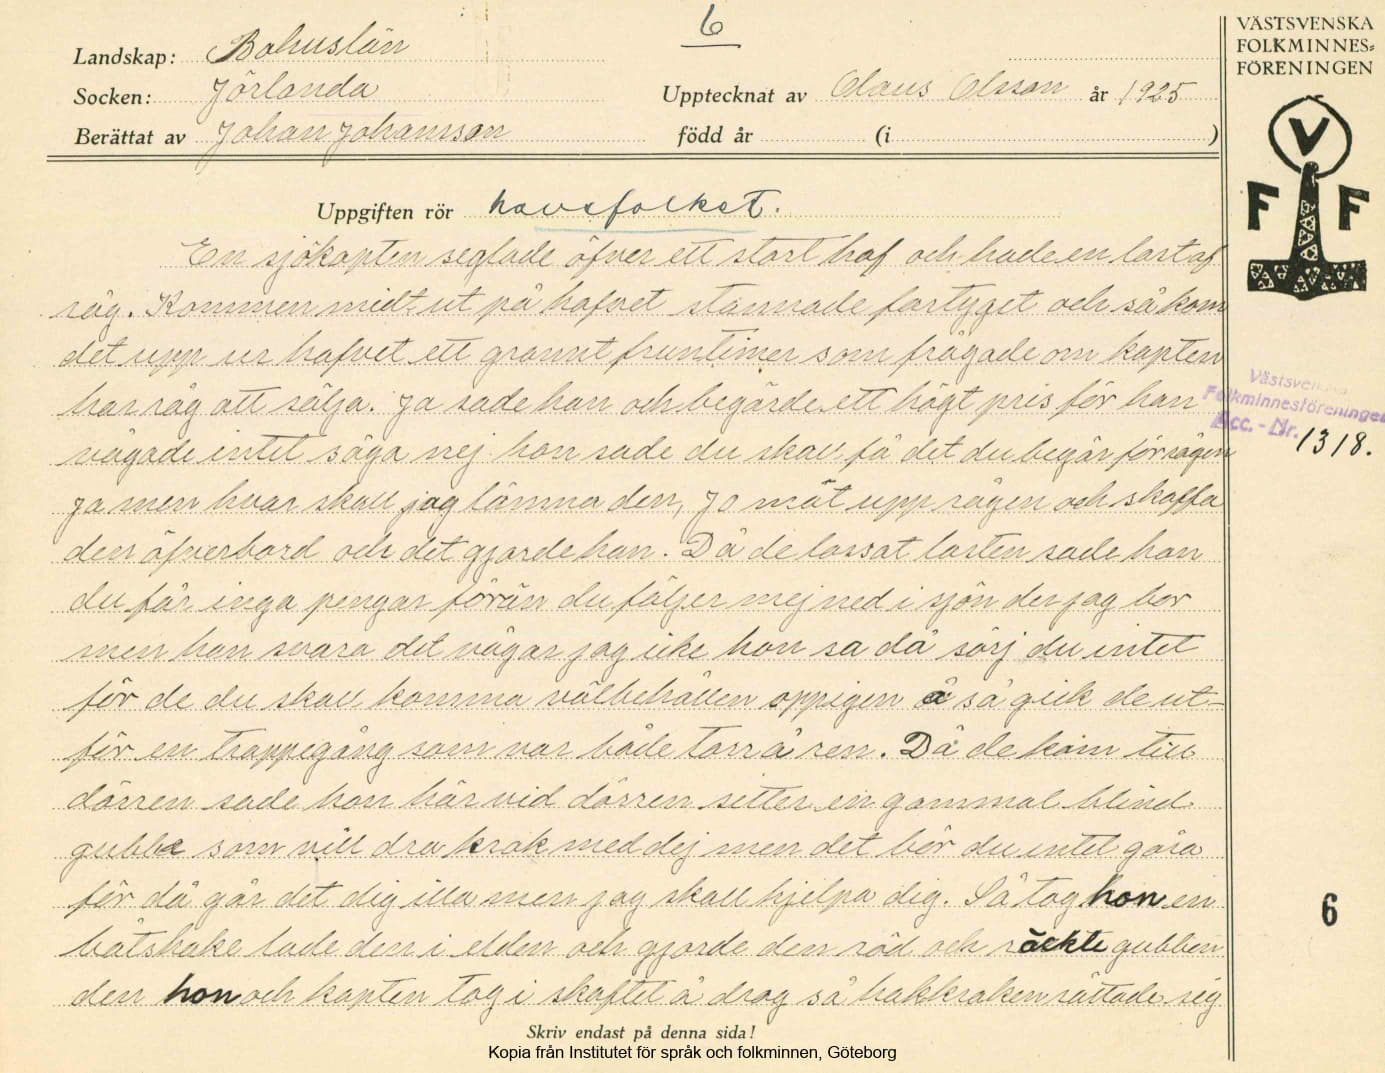 6
VÄSTSVENSKA
FOLKMINNES=
FÖRENINGEN
Landskap: Bohuslän
Socken: Jörlanda
Upptecknat av Olaus Olsson år 1925
Berättat av Johan Johansson
född år (i )
V
F F
Uppgiften rör havsfolket.
En sjökapten seglade öfver ett stort haf och hade en last af
råg. Kommen midt ut på hafvet stannade fartyget och så kom
det upp ur hafvet ett grannt fruntimer som frågade om kapten
har råg att sälja. Ja sade han och begärde ett högt pris för han
vågade intet säga nej. hon sade du skall få det du begär för rågen
Ja men hvar skall jag lämna den, Jo mät upp rågen och skaffa
den öfverbord och det gjorde han. Då de lossat lasten sade hon
du får inga pengar förrän du följer mej ned i sjön der jag bor
men han svara det vågar jag icke hon sa då sörj du intet
för de du skall komma välbehållen oppigen å så gick de ut-
för en trappegång som var både torr å ren. Då de kom till
dörren sade hon här vid dörren sitter en gammal blind
gubbe som vill dra krok med dej men det bör du intet göra
för då går det dig illa men jag skall hjelpa dig. Så tog hon en
båtshake lade den i elden och gjorde den röd och räckte gubben
den hon och kapten tog i skaftet å drog så båtkraken rättade sig
Västsvenska
Folkminnesföreningen
Acc.-Nr. 1318.
6
Skriv endast på denna sida!
Kopia från Institutet för språk och folkminnen, Göteborg